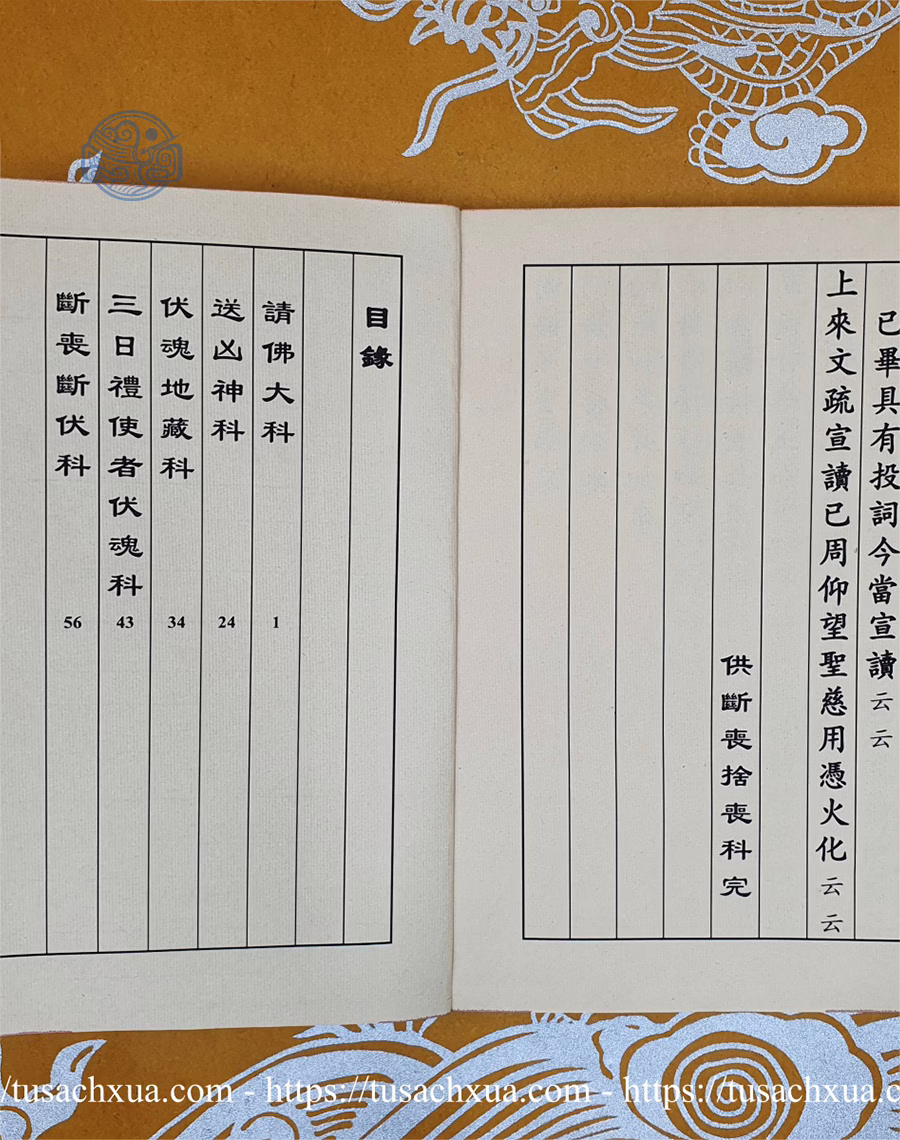 已畢具有投詞今當宣讀云云
上來文疏宣讀已周仰望聖慈用憑火化云云
供斷喪捨喪科完
目錄
請佛大科 1
送凶神科 24
伏魂地藏科 34
三日禮使者伏魂科 43
斷喪斷伏科 56
/tusachxua.com - https://tusachxua.com - https://tusachxua.com